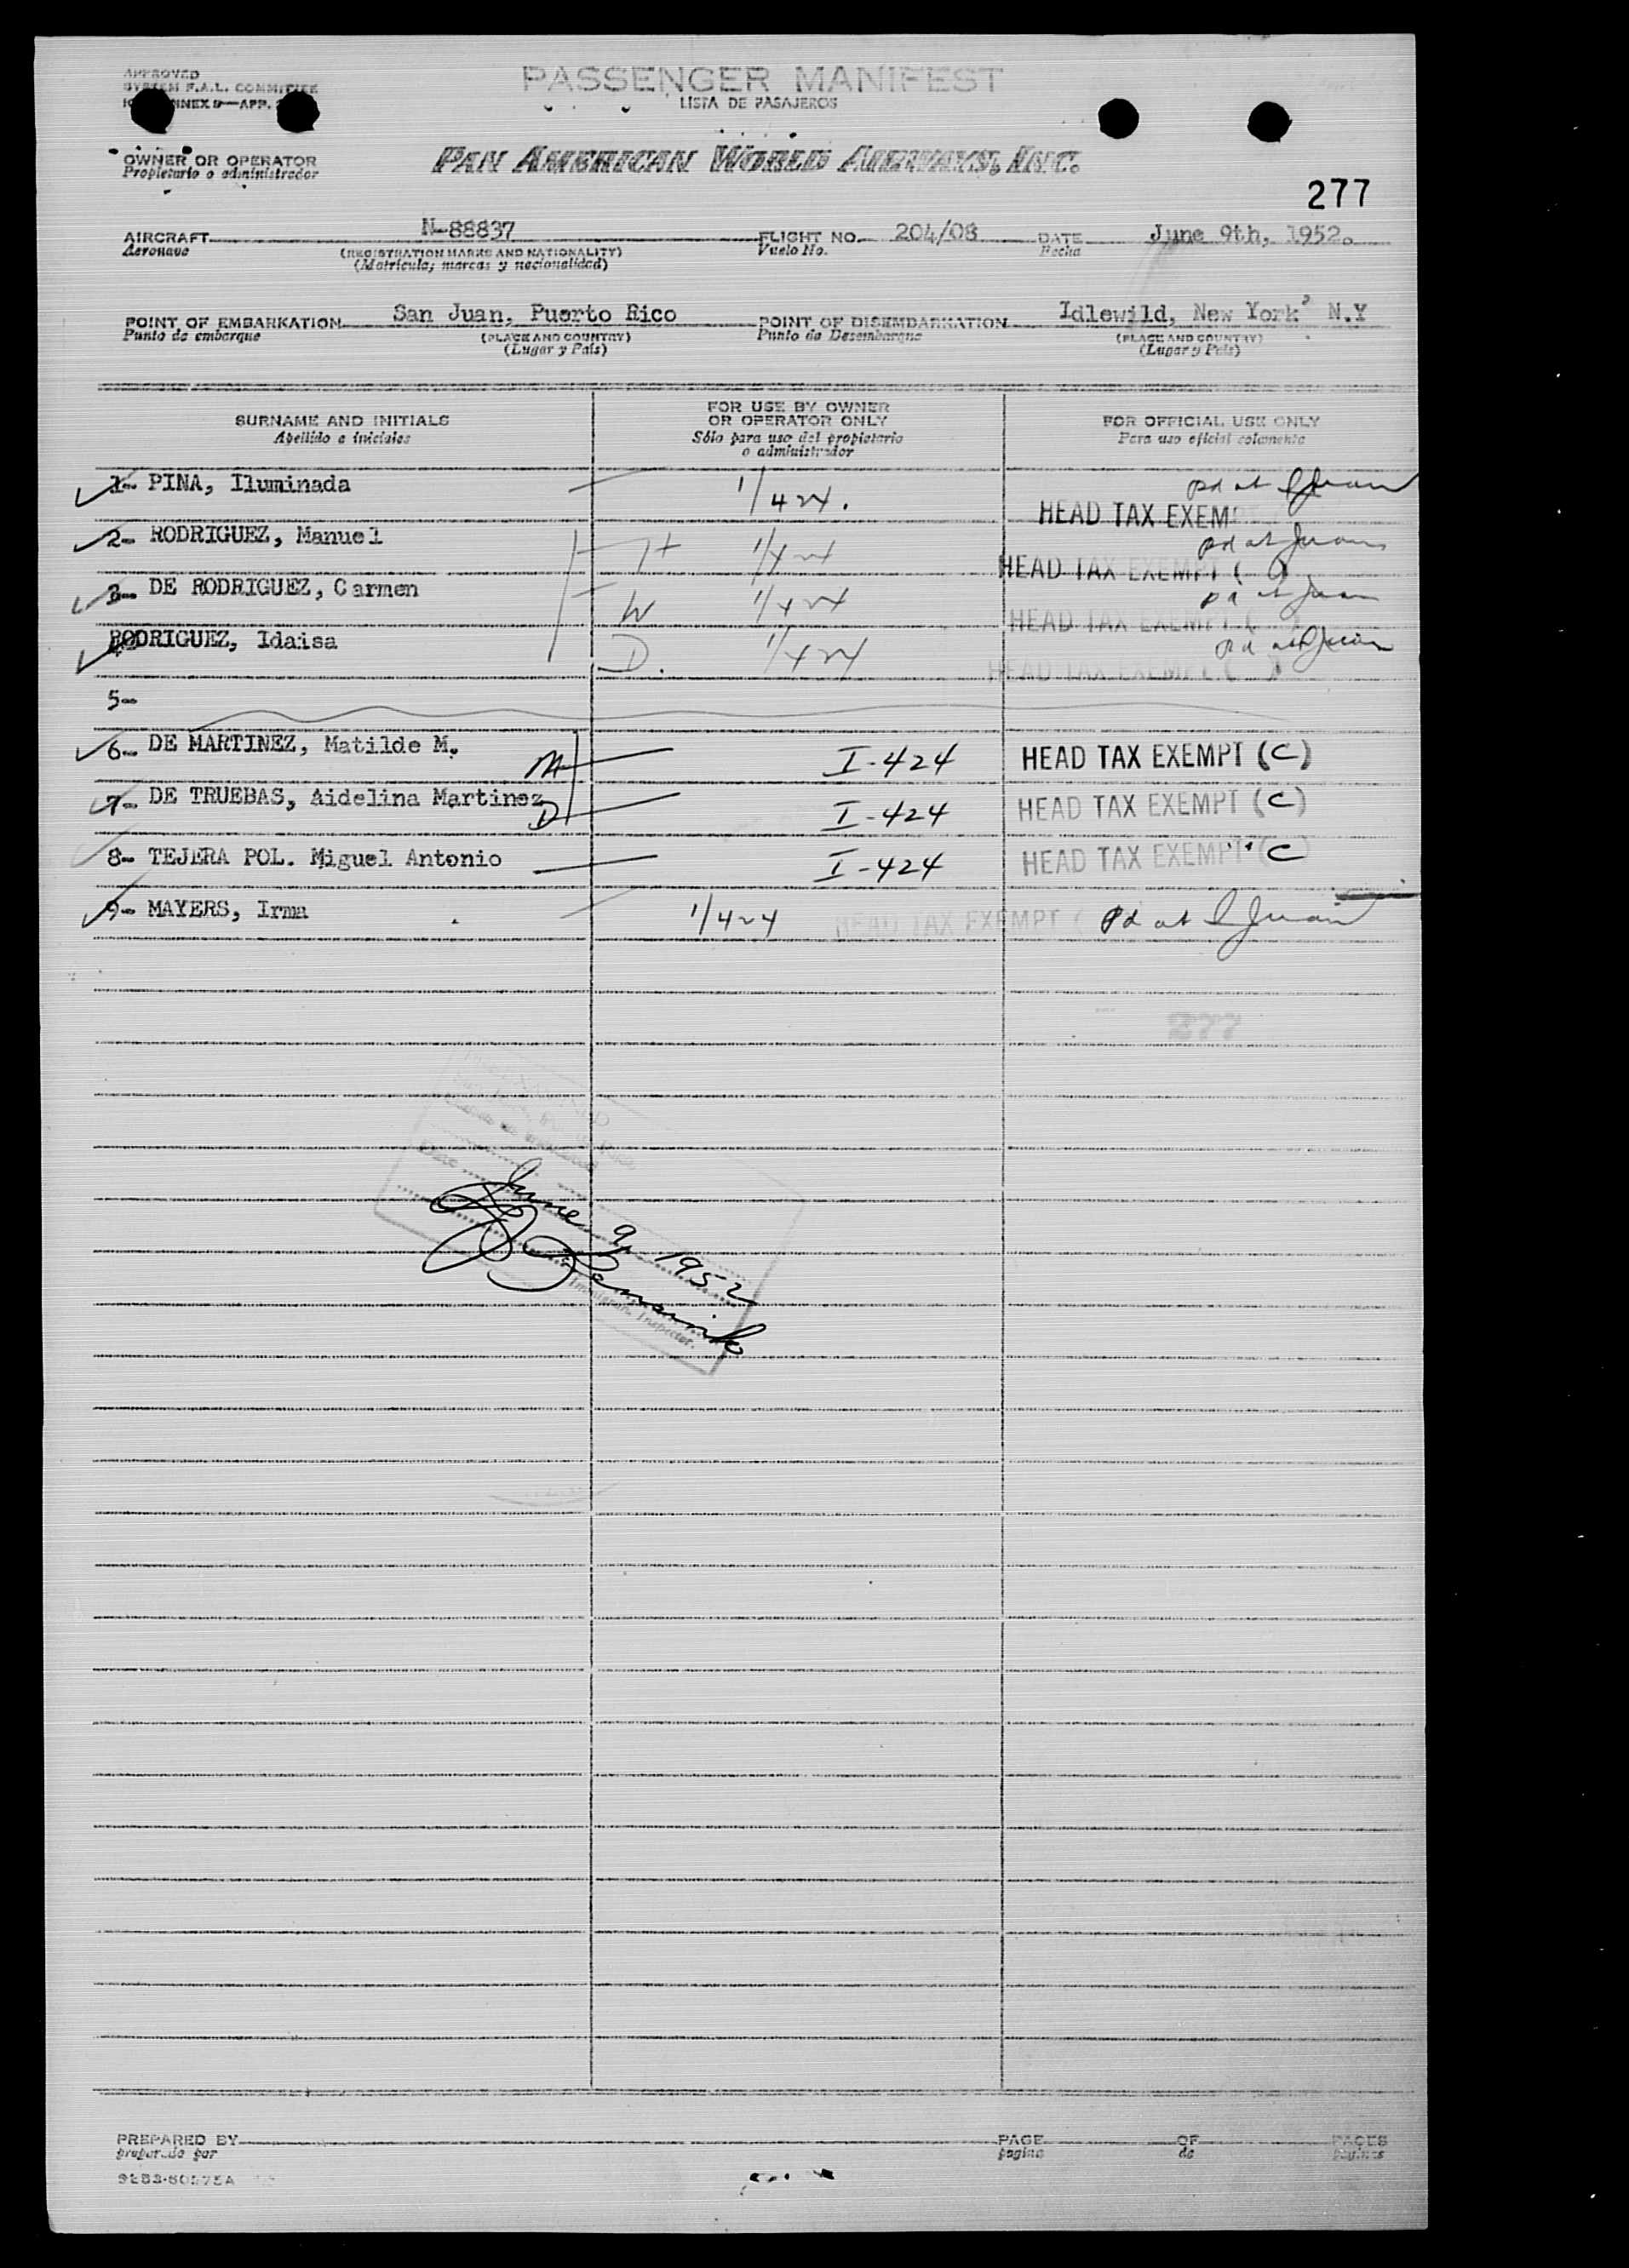 APPROVED
SYSTEM F.A.L. COMMITTEE
ANNEX 9—APP.
PASSENGER MANIFEST
LISTA DE PASAJEROS
OWNER OR OPERATOR
Propietario o administrador
PAN AMERICAN WORLD AIRWAYS, INC.
277
AIRCRAFT N-88837 FLIGHT NO. 204/08 DATE June 9th, 1952.
Aeronave (REGISTRATION MARKS AND NATIONALITY) Vuelo No. Fecha
(Matricula; marcas y nacionalidad)
POINT OF EMBARKATION San Juan, Puerto Rico POINT OF DISEMBARKATION Idlewild, New York, N.Y
Punto de embarque (PLACE AND COUNTRY) Punto de Desembarque (PLACE AND COUNTRY)
(Lugar y País) (Lugar y País)
SURNAME AND INITIALS FOR USE BY OWNER OR OPERATOR ONLY FOR OFFICIAL USE ONLY
Apellido e iniciales Sólo para uso del propietario o administrador Para uso oficial solamente
1- PINA, Iluminada 1/424. pd at S Juan
HEAD TAX EXEM
2- RODRIGUEZ, Manuel H 1/424 pd at Juan
HEAD TAX EXEMPT ( )
3- DE RODRIGUEZ, Carmen W 1/424 pd at Juan
HEAD TAX EXEMPT (
RODRIGUEZ, Idaisa D. 1/424 pd at S Juan
HEAD TAX EXEMPT ( )
5-
6- DE MARTINEZ, Matilde M. M I-424 HEAD TAX EXEMPT (C)
7- DE TRUEBAS, Aidelina Martinez D I-424 HEAD TAX EXEMPT (C)
8- TEJERA POL. Miguel Antonio I-424 HEAD TAX EXEMPT (C)
9- MAYERS, Irma 1/424 HEAD TAX EXEMPT ( pd at S Juan
277
Date
June 9, 1952
Immigrant Inspector.
PREPARED BY PAGE OF PAGES
preparado por pagina de paginas